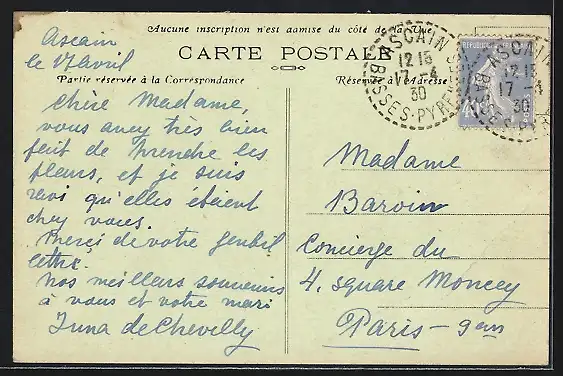 Aucune inscription n'est admise du côté de la Vue
CARTE POSTALE
Partie réservée à la Correspondance
Réservée à l'Adresse
ASCAIN
12 15
17 - 4
30
BASSES-PYR
ASCAIN
12 15
17 - 4
30
BASSES-P
Ascain
le 17 avril
Chère Madame,
vous avez très bien
fait de prendre les
fleurs, et je suis
ravi qu'elles étaient
chez vous.
Merci de votre gentil
lettre.
Nos meilleurs souvenirs
à vous et votre mari
de Chevilly
Madame
Baroin
Concierge du
4, square Moncey
Paris - 9em